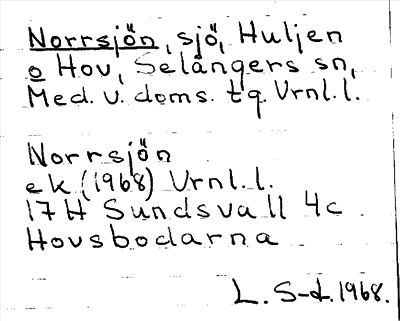 Norrsjön, sjö, Huljen
o Hov, Selångers sn,
Med. v. doms. tg. Vrnl. l.
Norrsjön
ek (1968) Vrnl. l.
17H Sundsvall 4c
Hovsbodarna
L. S-d. 1968.